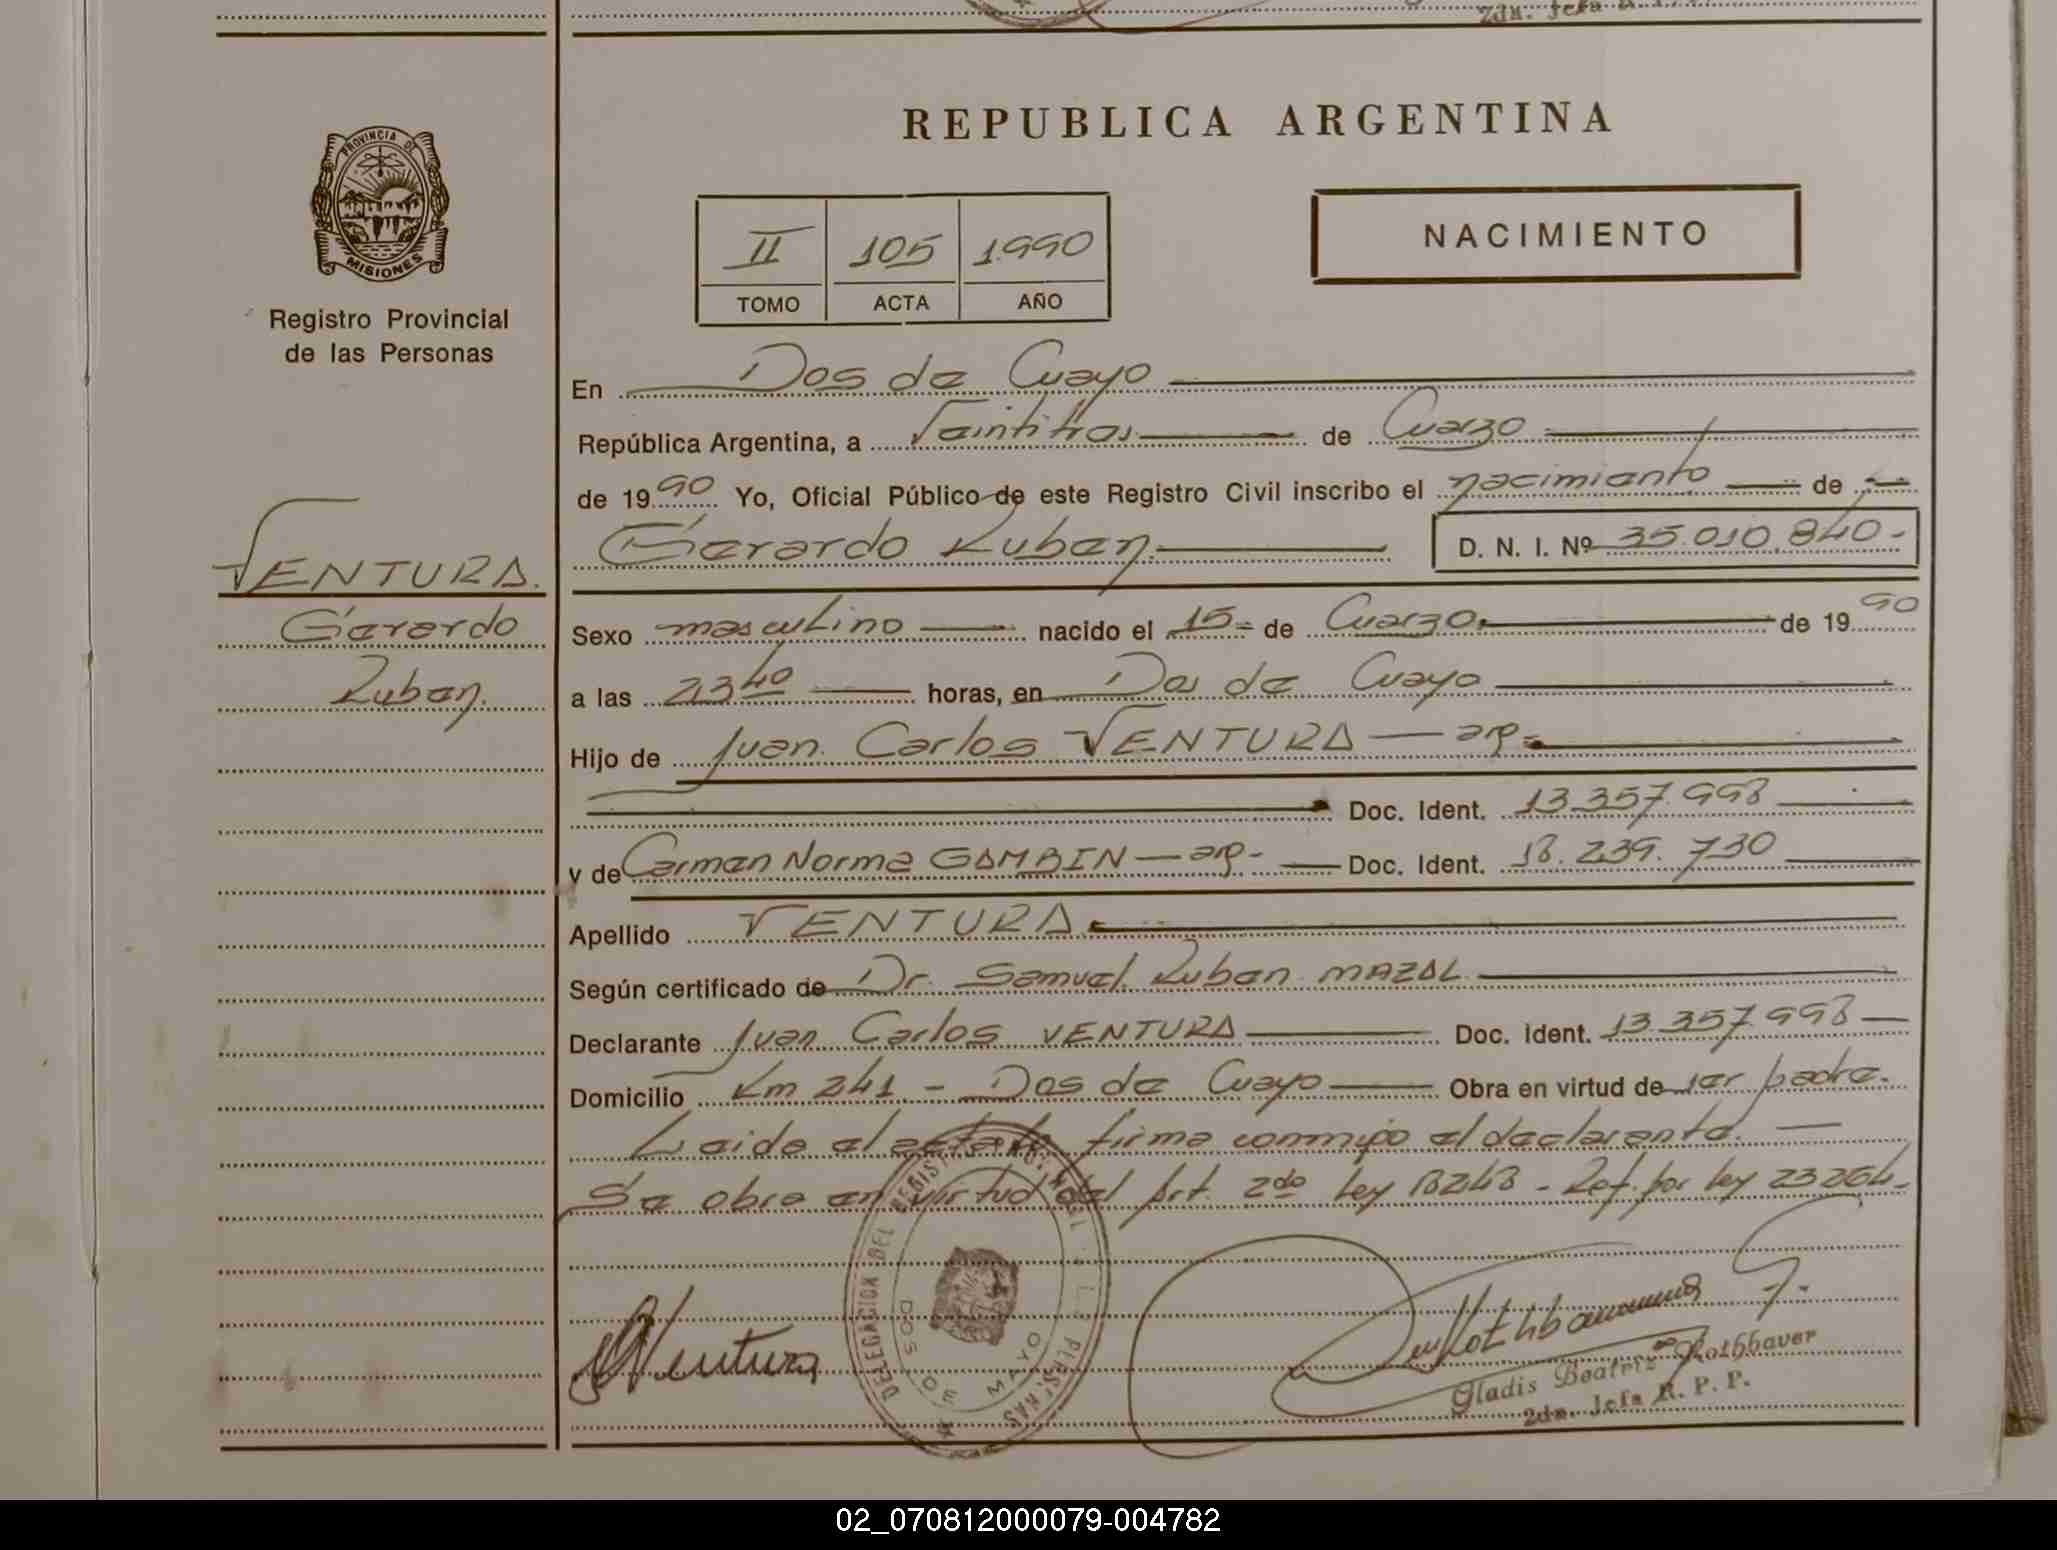 2da. Jefa R. P. P.
REPUBLICA ARGENTINA
PROVINCIA DE
MISIONES
Registro Provincial
de las Personas
II 105 1.990
TOMO ACTA AÑO
NACIMIENTO
En Dos de Mayo
República Argentina, a Veintitres de Marzo
de 1990 Yo, Oficial Público de este Registro Civil inscribo el nacimiento de
Gerardo Ruben D. N. I. Nº 35.010.840-
VENTURA.
Gerardo
Ruben.
Sexo masculino nacido el 15 de Marzo de 1990
a las 23 40 horas, en Dos de Mayo
Hijo de Juan Carlos VENTURA — arg-
Doc. Ident. 13.357.998
y de Carmen Norma GAMBIN — arg- Doc. Ident. 18.239.730
Apellido VENTURA
Según certificado de Dr. Samuel Ruben MAZAL
Declarante Juan Carlos VENTURA Doc. Ident. 13.357.998
Domicilio Km 241 - Dos de Mayo Obra en virtud de ser padre.
Leida el acta la firma conmigo el declarante.
Se obra en virtud del Art. 2do Ley 18248 - Ref. por Ley 23264-
DELEGACION DEL REGISTRO PROVINCIAL DE LAS PERSONAS
DOS DE MAYO
Ventura
Gladis Beatriz Rothbauer
2da. Jefa R. P. P.
02_070812000079-004782